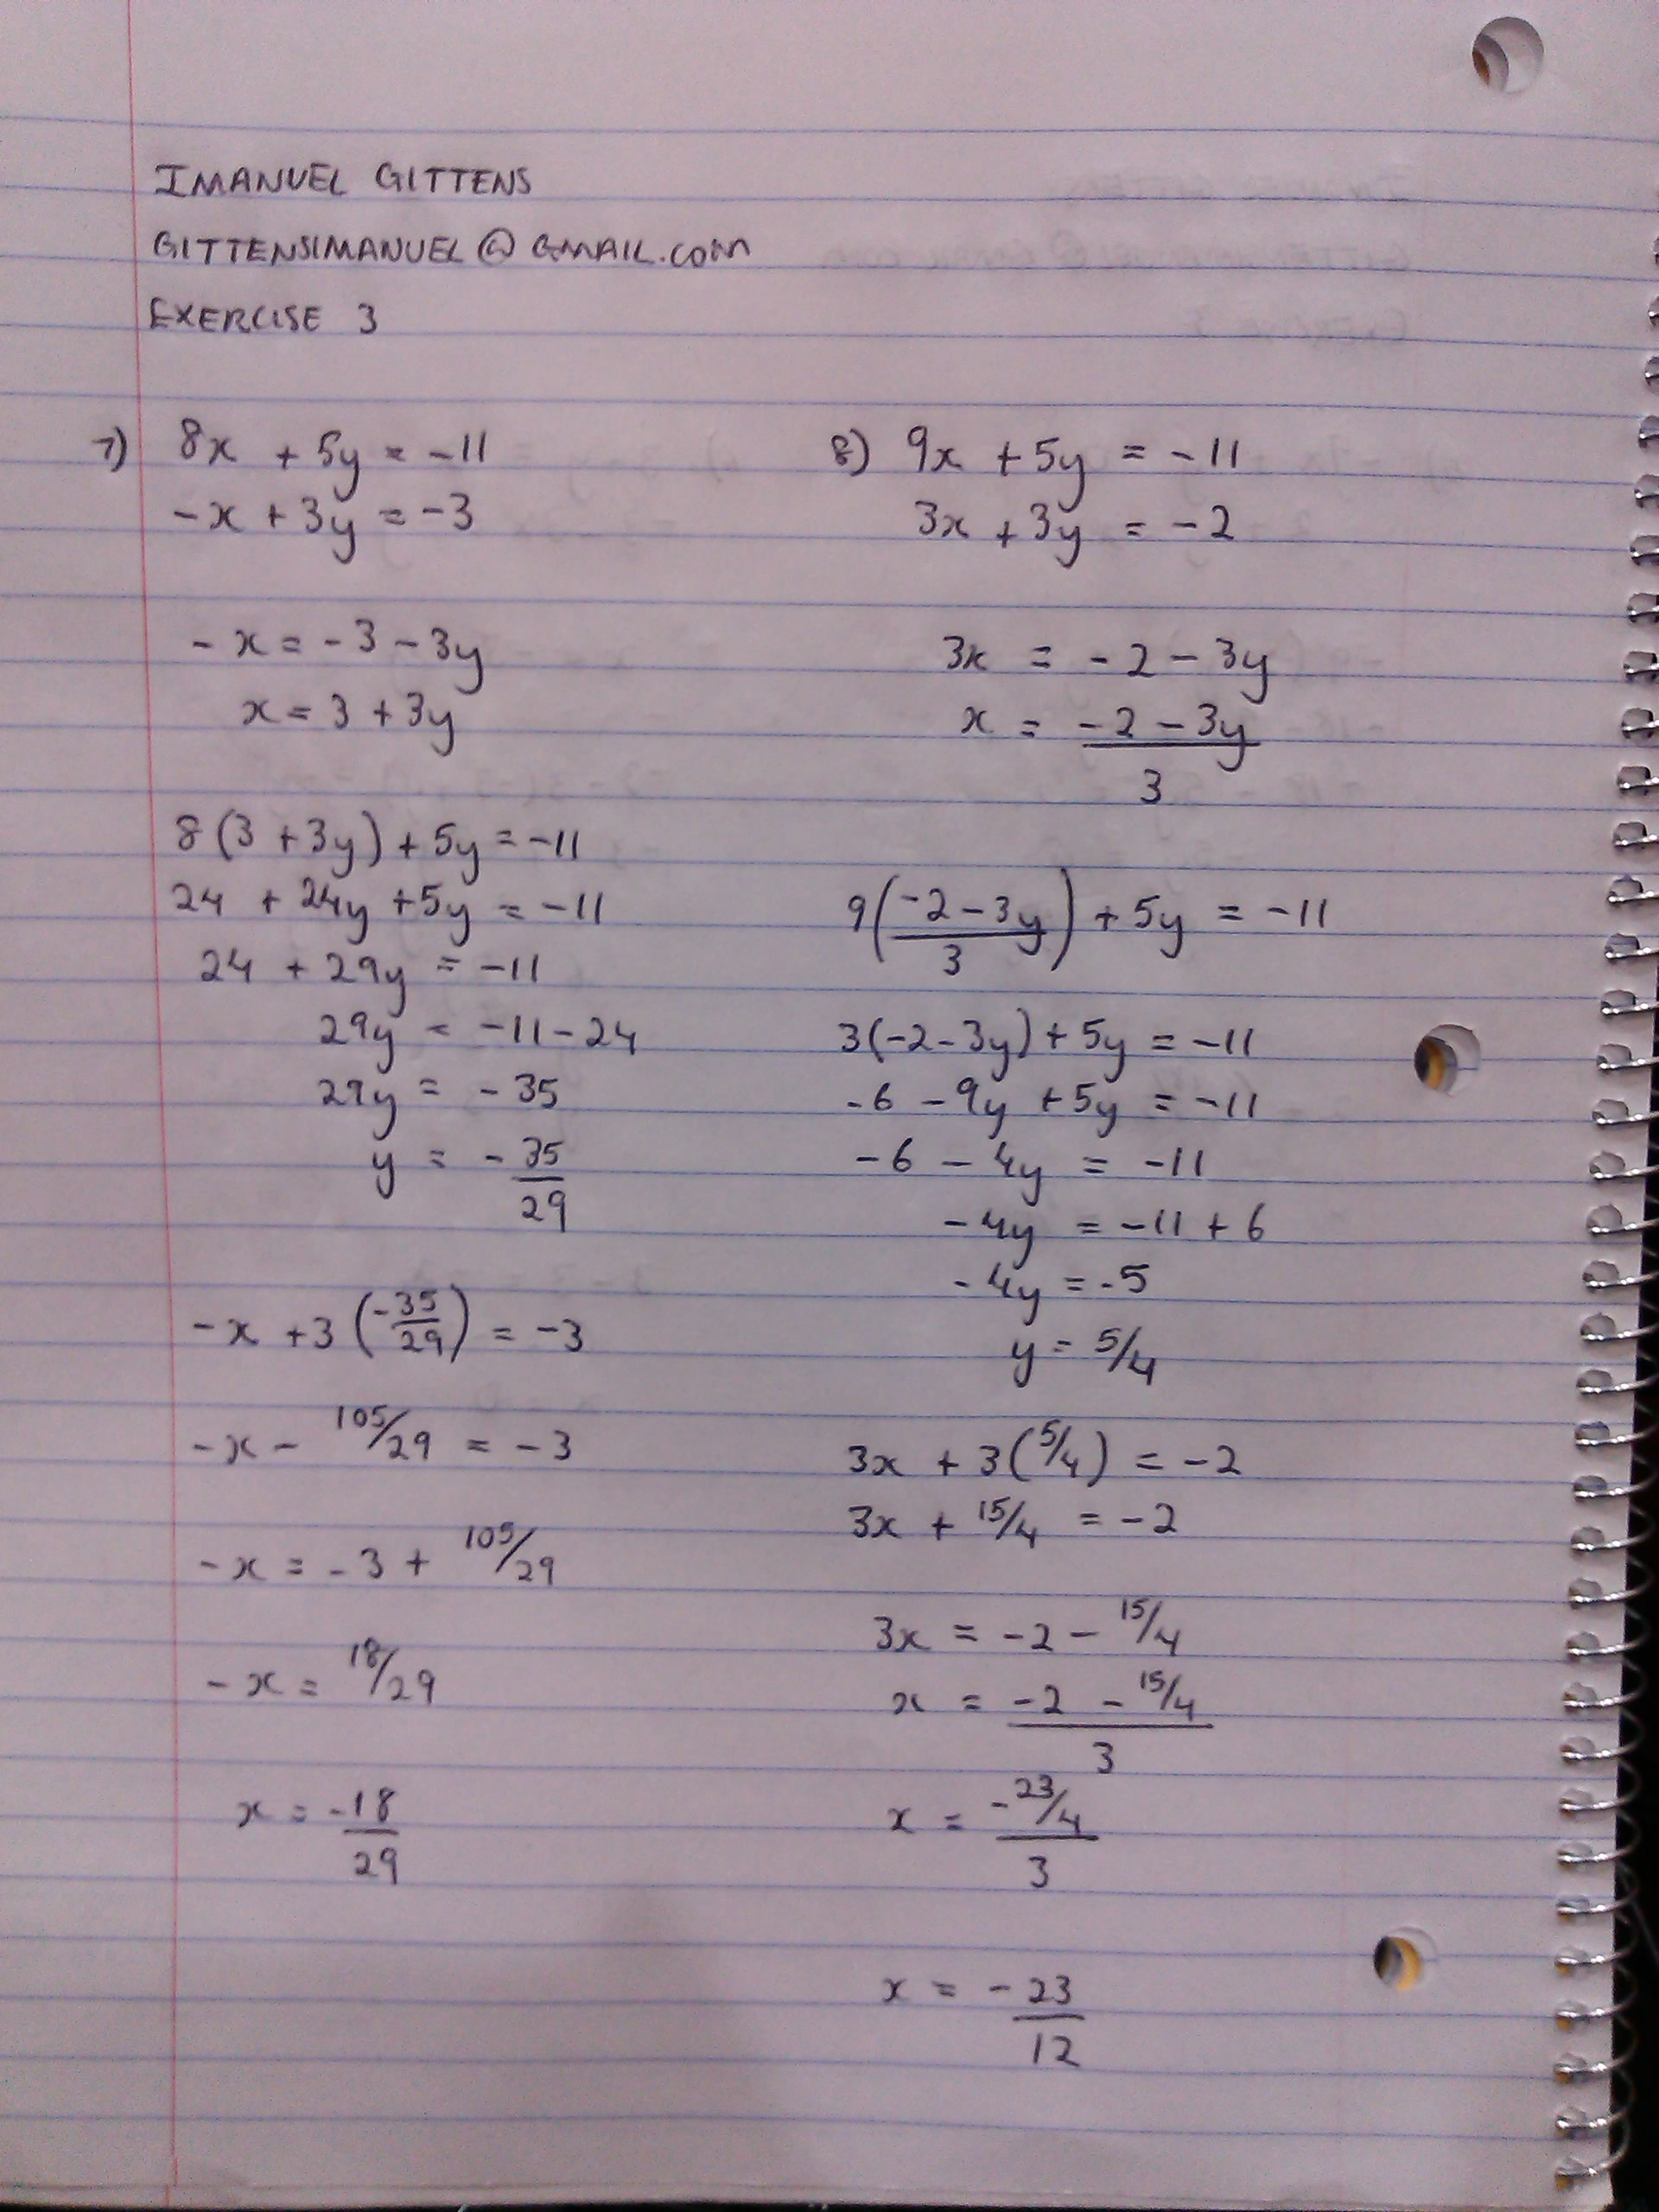 IMANUEL GITTENS
GITTENSIMANUEL@GMAIL.COM
EXERCISE 3
7) 8x + 5y = -11
-x + 3y = -3
-x = -3 - 3y
x = 3 + 3y
8(3 + 3y) + 5y = -11
24 + 24y + 5y = -11
24 + 29y = -11
29y = -11 - 24
29y = -35
y = -35/29
-x + 3(-35/29) = -3
-x - 105/29 = -3
-x = -3 + 105/29
-x = 18/29
x = -18/29
8) 9x + 5y = -11
3x + 3y = -2
3x = -2 - 3y
x = -2 - 3y
3
9(-2 - 3y/3) + 5y = -11
3(-2 - 3y) + 5y = -11
-6 - 9y + 5y = -11
-6 - 4y = -11
-4y = -11 + 6
-4y = -5
y = 5/4
3x + 3(5/4) = -2
3x + 15/4 = -2
3x = -2 - 15/4
x = -2 - 15/4
3
x = -23/4
3
x = -23/12